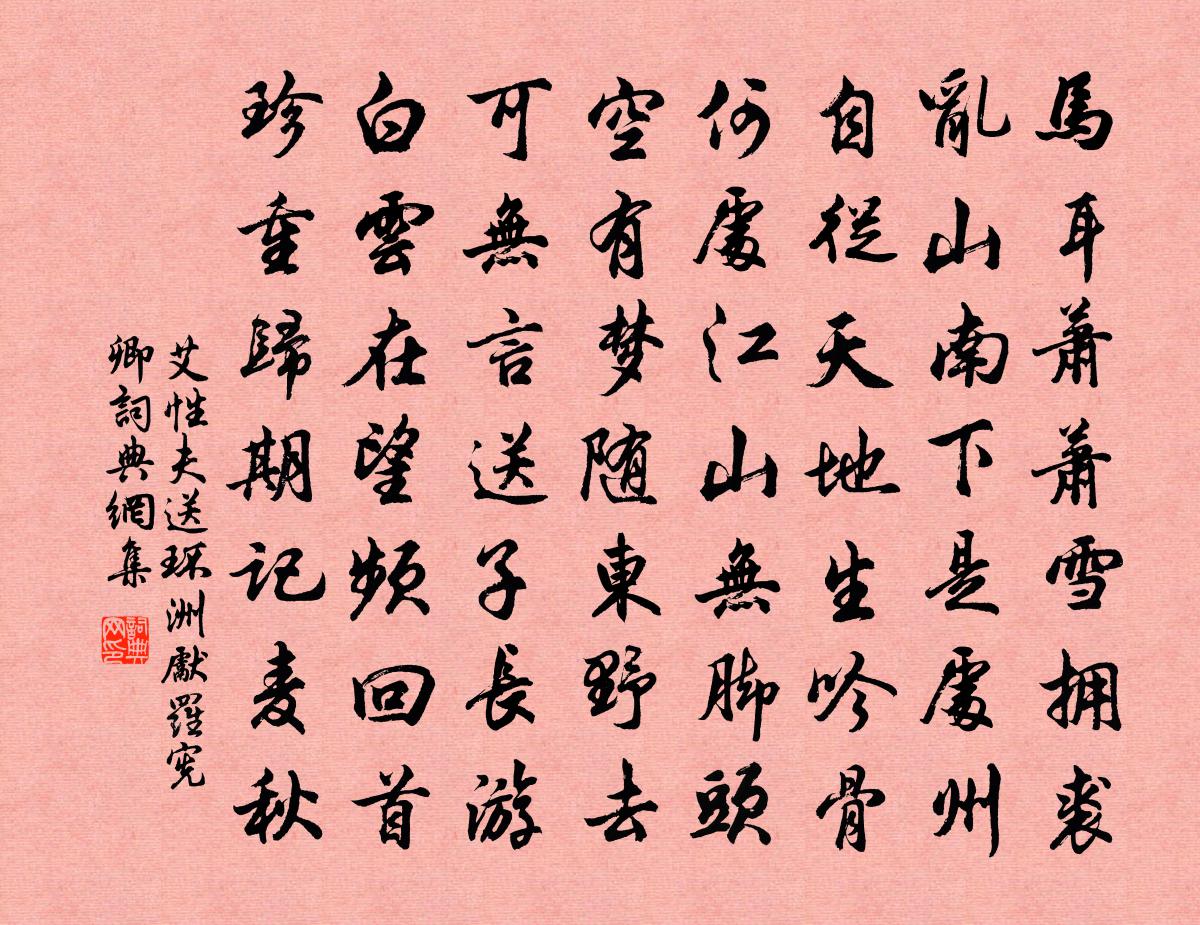 馬耳蕭蕭雪拥裘
亂山南下是處州
自從天地生吟骨
何處江山無脚頭
空有梦随東野去
可無言送子長游
白雲在望頻回首
珍重歸期記麦秋
艾性夫送琛洲獻羅寃
卿詞典網集
詞典网印